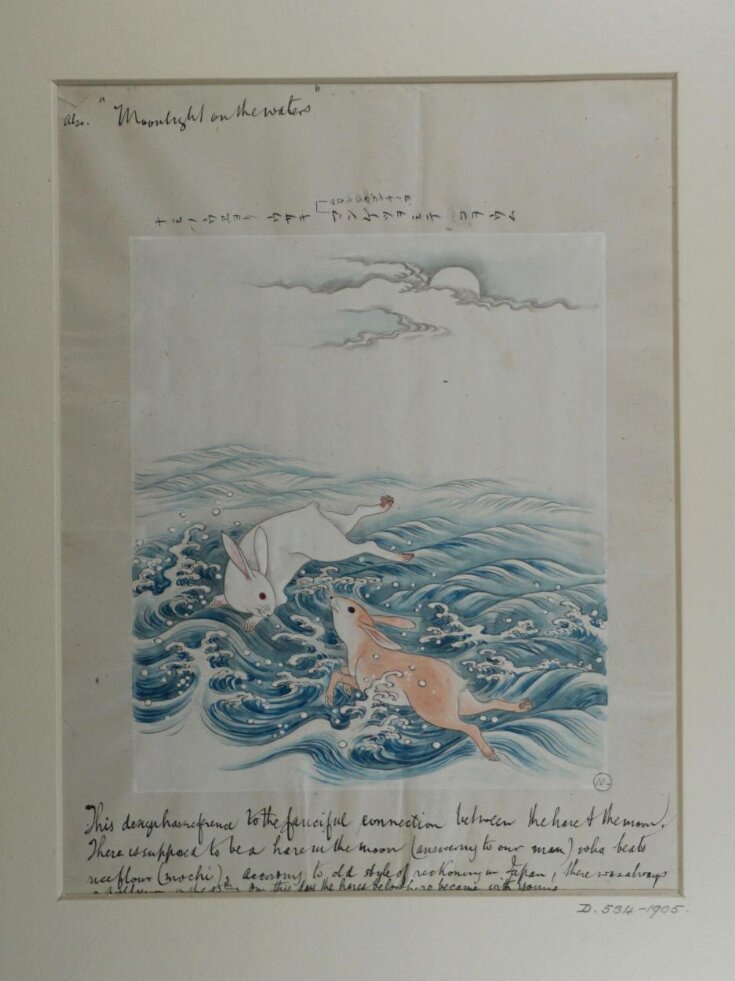 also. "Moonlight on the waters"
ナミノウエヨリ ウサギ マンゲツヲミテ コヲウム
This design has reference to the fanciful connection between the hare & the moon.
There is supposed to be a hare in the moon (answering to our man) who beats
rice flour (mochi); according to old style of reckoning in Japan, there was always
a full moon on the 15th. On this day the hares below here became with young
D. 534-1905.